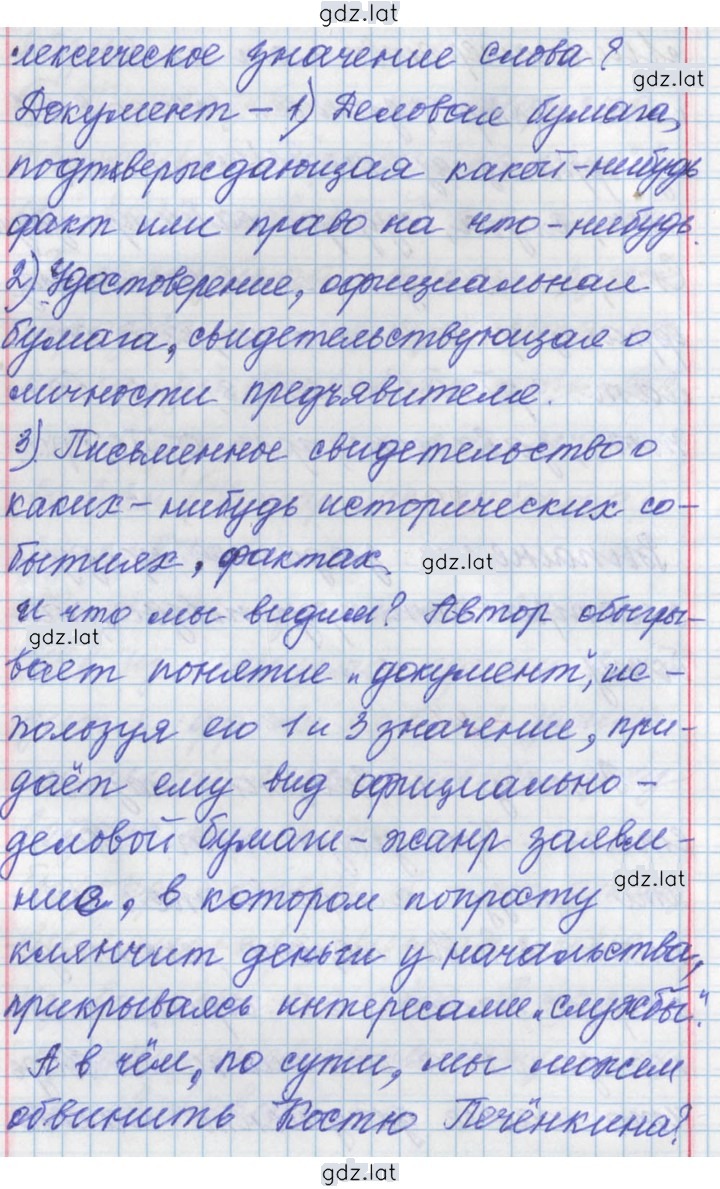 gdz.lat
лексическое значение слова?
gdz.lat
Документ – 1) Деловая бумага,
подтверждающая какой-нибудь
факт или право на что-нибудь.
2) Удостоверение, официальная
бумага, свидетельствующая о
личности предъявителя.
3) Письменное свидетельство о
каких-нибудь исторических со-
бытиях, фактах.
gdz.lat
И что мы видим? Автор обыгры-
gdz.lat
вает понятие „документ", ис-
пользуя его 1 и 3 значение, при-
даёт ему вид официально-
деловой бумаги – жанр заявле-
gdz.lat
ние, в котором попросту
клянчит деньги у начальства,
прикрываясь интересами „службы".
А в чём, по сути, мы можем
обвинить Костю Печёнкина?
gdz.lat